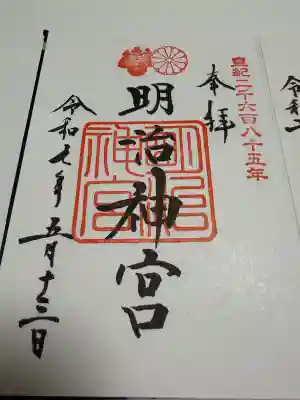 皇紀二千六百八十五年
奉拝
明治神宮
明治神宮
令和七年五月十三日
令和二